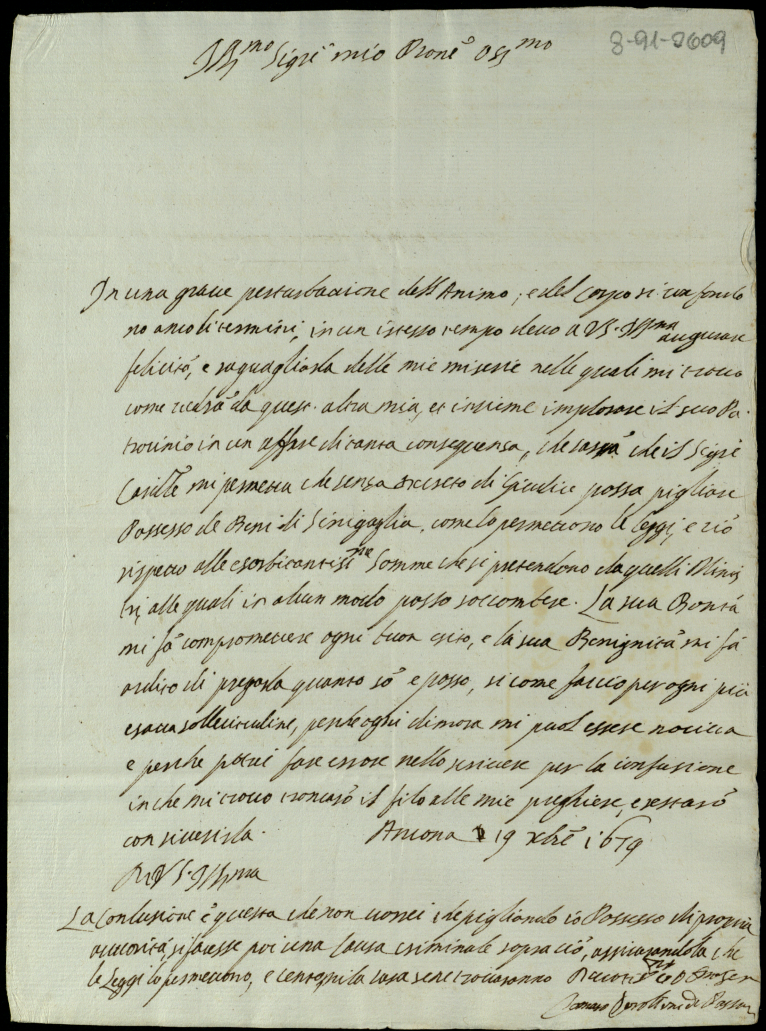 Ill.mo Sig.re mio Prone Oss.mo
8-91-2609
In una graue perturbatione dell'Animo, e del Corpo si confondo
no anco li termini, in un istesso tempo deuo a VS. Ill.ma augurare
felicità, e raguagliarla delle mie miserie nelle quali mi trouo
come uedrà da quest'altra mia, et insieme implorare il suo Pa
trocinio in un affare di tanta consequenza, che sarà che il Sig.re
mi permetta che senza decreto di Giudice possa pigliare
Possesso de Beni di Sinigaglia, come lo permettono le Leggi, e ciò
rispetto alle esorbitantiss.me Somme che si pretendono da quelli Minis
tri, alle quali in alcun modo posso soccombere. La sua Bontà
mi fà compromettere ogni buon esito, e la sua Benignità mi fà
ardito di pregarla quanto sò e posso, si come faccio per ogni più
esatta sollecitudine, perche ogni dimora mi puol essere nociua
e perche potrei fare errore nello scriuere per la confusione
in che mi trouo troncarò il filo alle mie preghiere, e restarò
con riuerirla. Ancona 19 Xbre 1679
Di VS. Ill.ma
La Conclusione è questa che non uorrei che pigliando io Possesso di propria
autorità, si facesse poi una Causa criminale sopra ciò, assicurandola che
le Leggi lo permettono, e cento